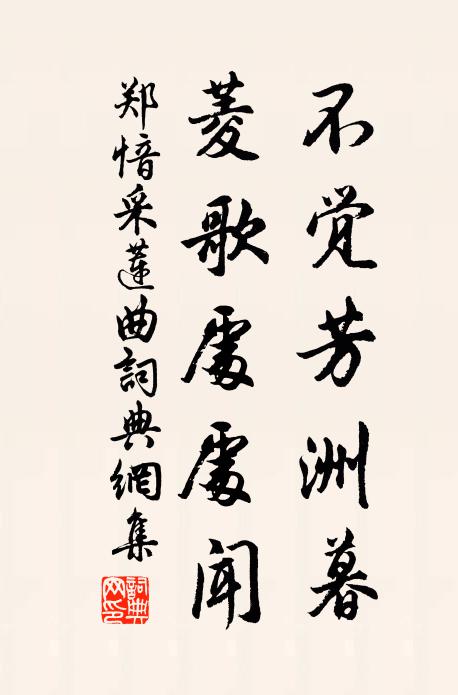 不觉芳洲暮
菱歌處處闻
郑愔采蓮曲詞典網集
詞典
网印